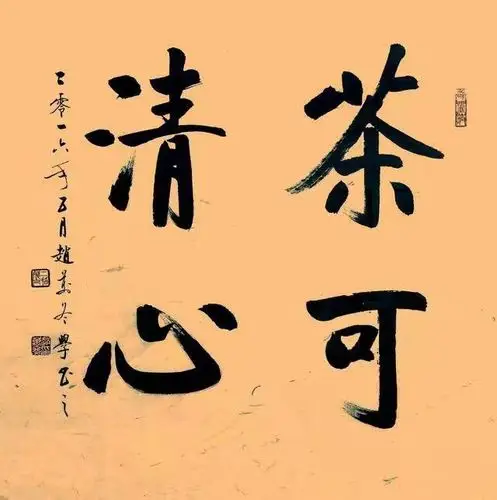 茶可
清心
二零一六年五月趙冬學之